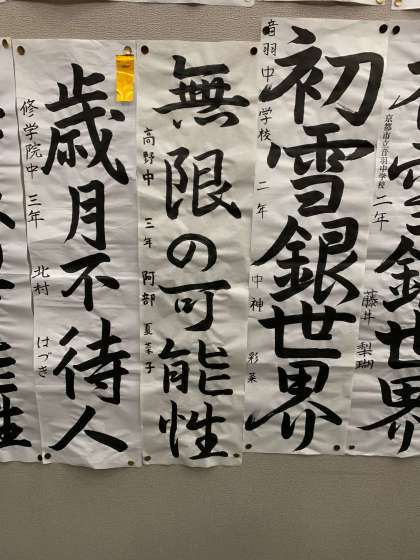 銀世界
京都市立音羽中学校 二年 藤井 梨瑚
初雪銀世界
音羽中学校 二年 中神 彩菜
無限の可能性
高野中 三年 阿部 夏菜子
歳月不待人
修学院中 三年 北村 はづき
能性